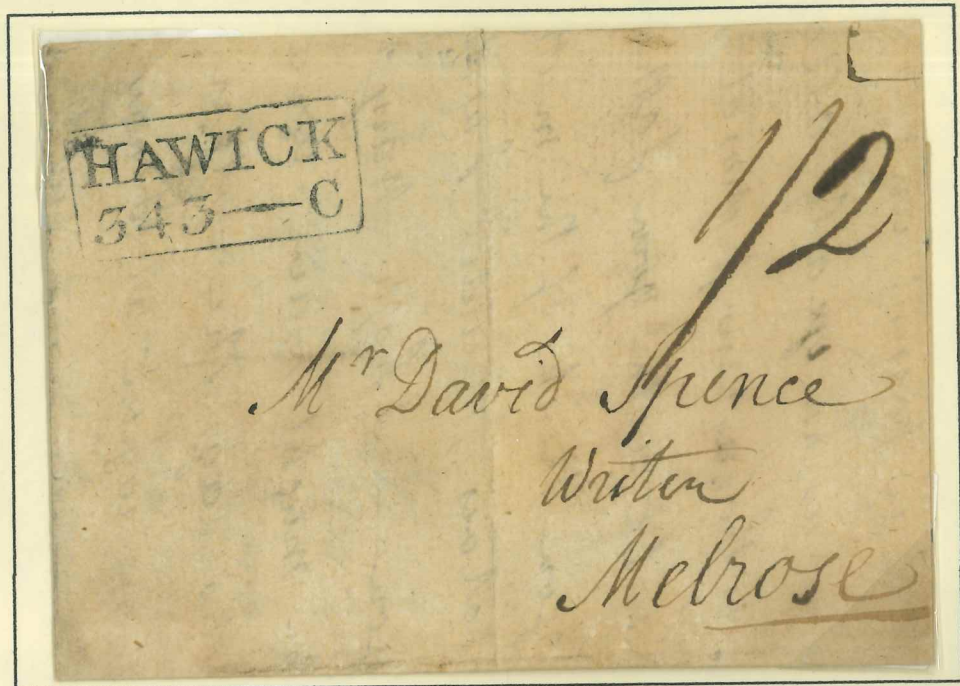 HAWICK
343—C
1/2
Mr David Spence
Writer
Melrose